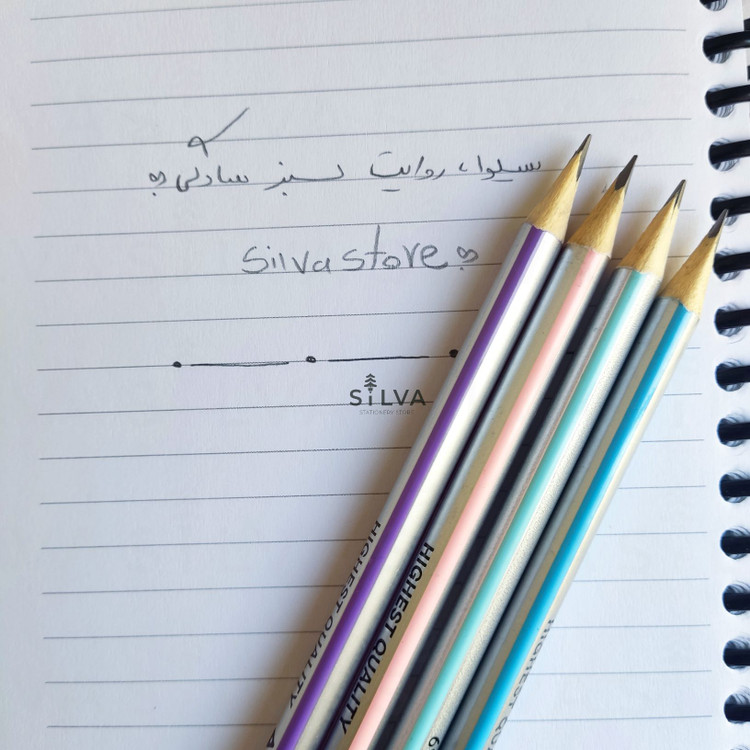 سیلوا، روایت سبز سادگی
Silva store
SiLVA
STATIONERY STORE
HIGHEST QUALITY
HIGHEST QUALITY
HIGHEST QU
6